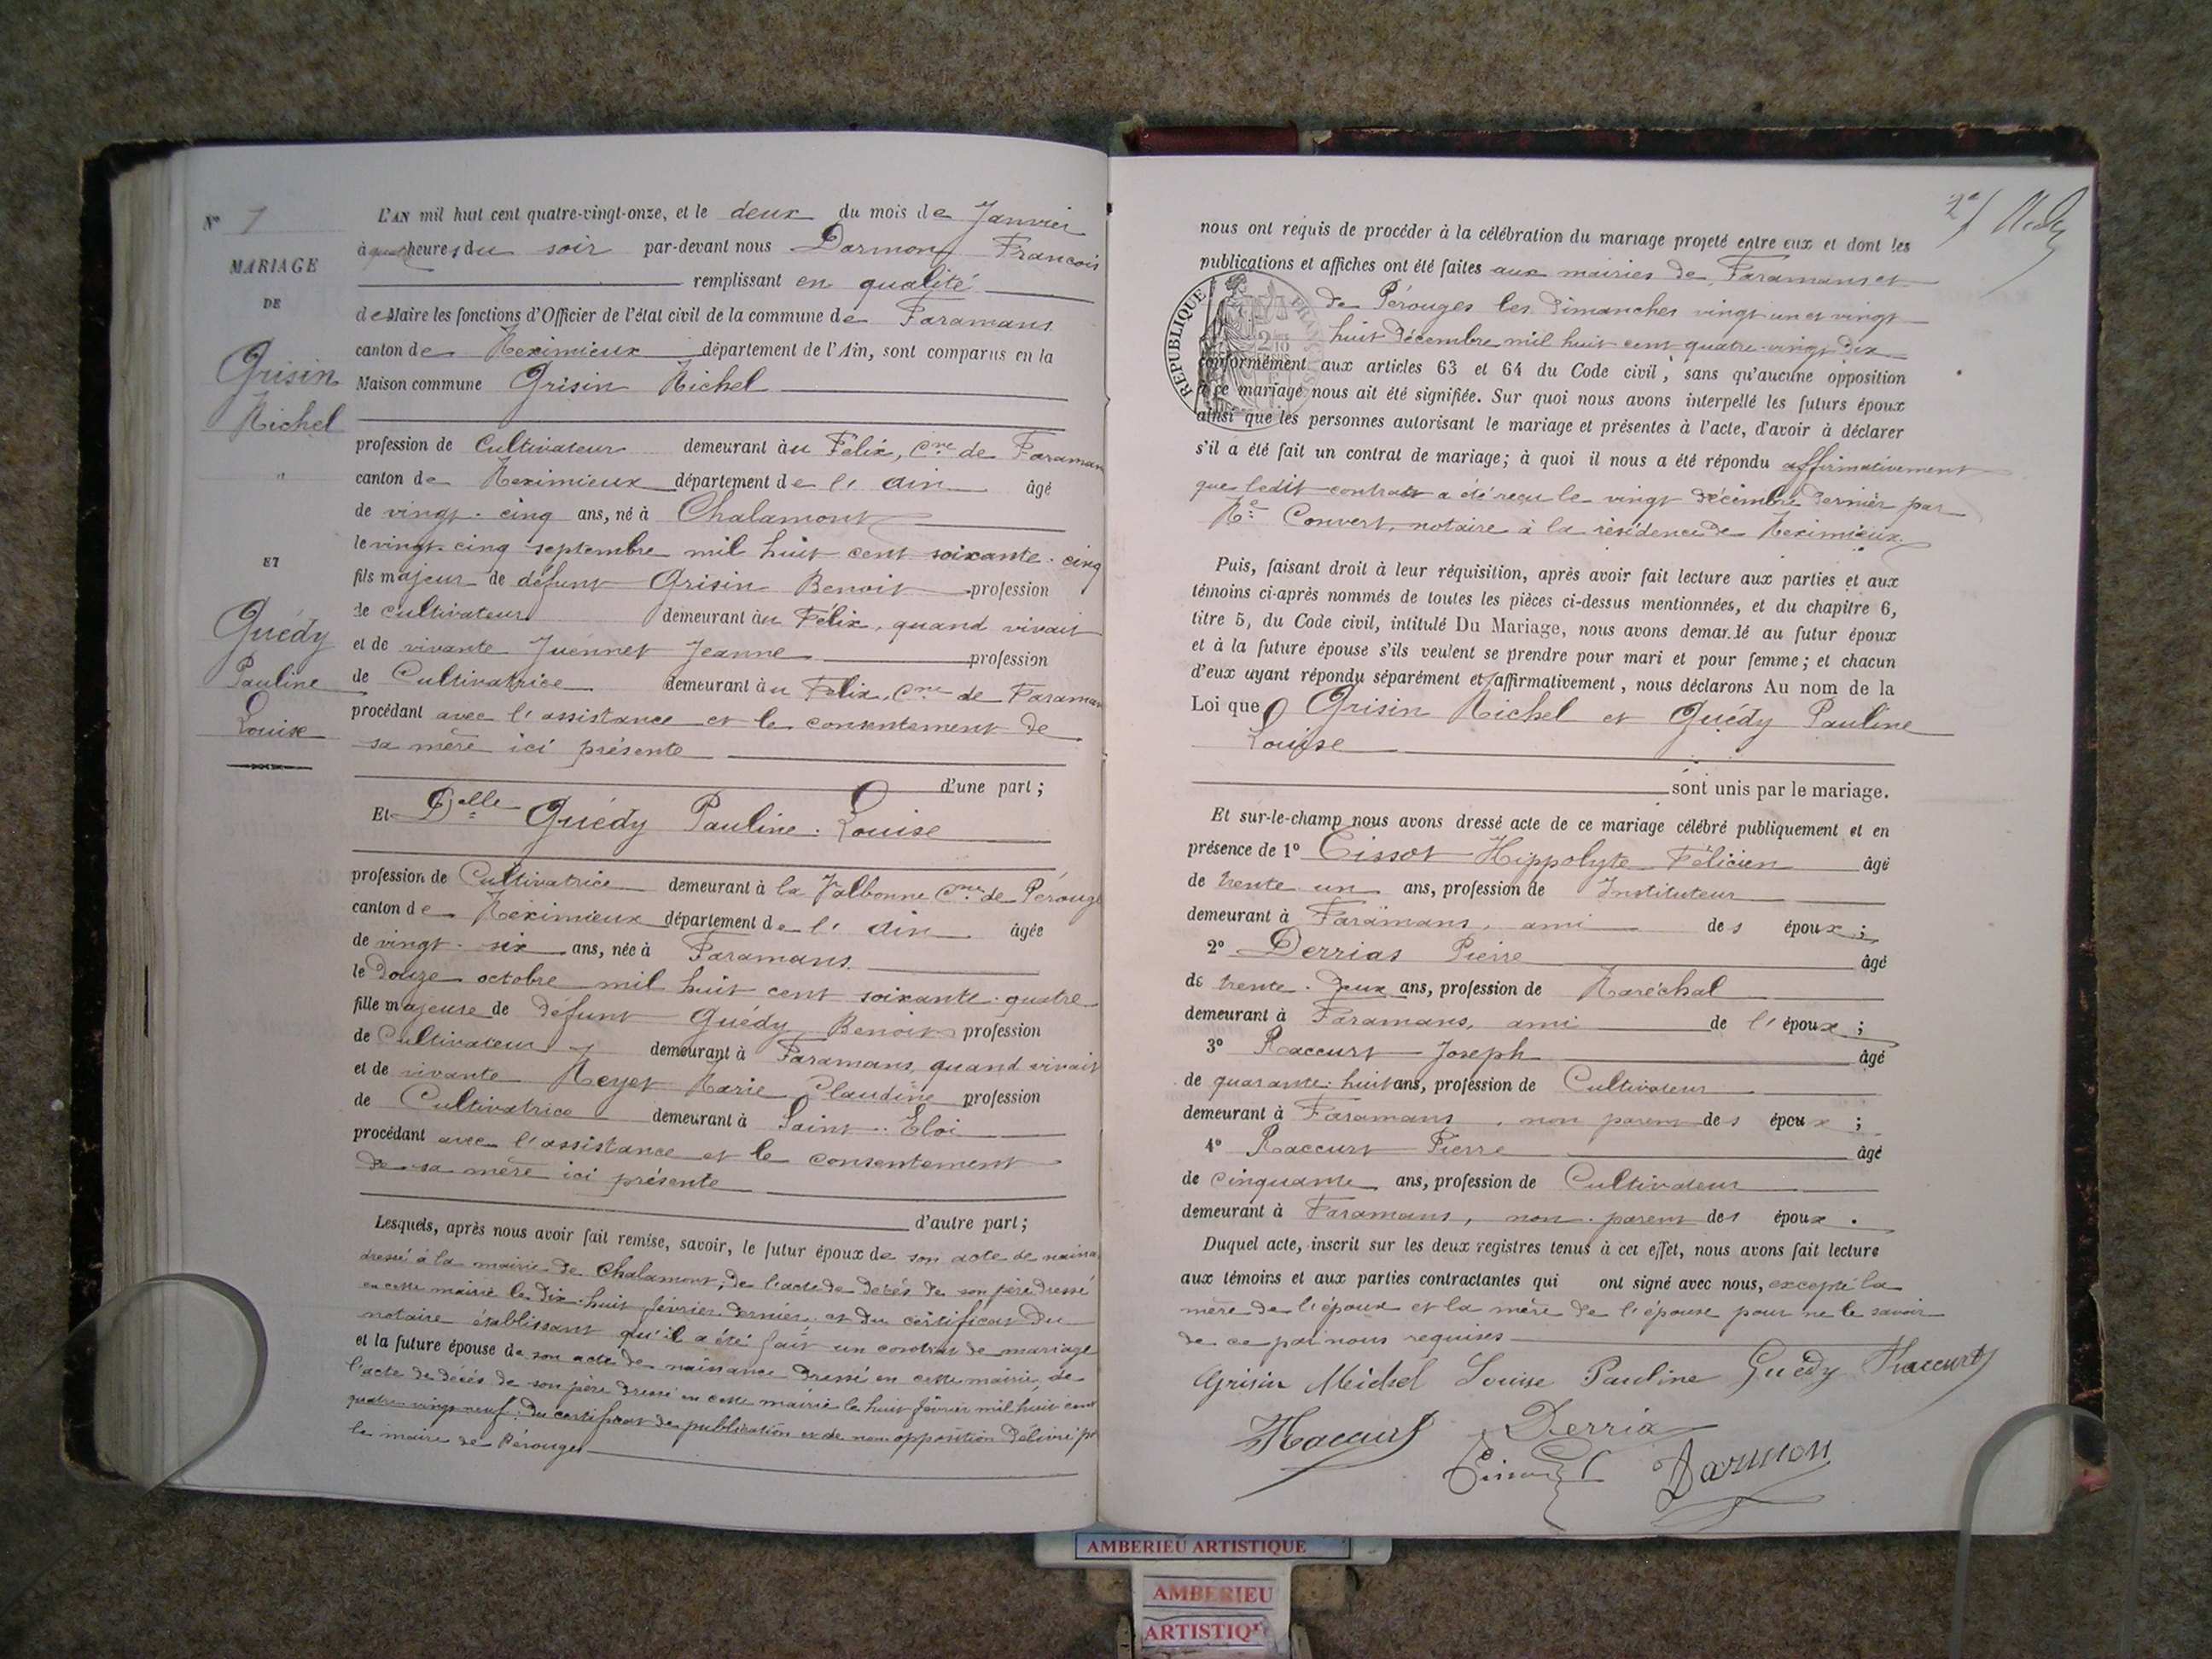 N° 1
MARIAGE
DE
Grisin
Michel
ET
Guédy
Pauline
Louise
L'AN mil huit cent quatre-vingt-onze, et le deux du mois de Janvier
à quatre heures du soir par-devant nous Darmon François
remplissant en qualité
de Maire les fonctions d'Officier de l'état civil de la commune de Faramans
canton de Meximieux département de l'Ain, sont comparus en la
Maison commune Grisin Michel
profession de Cultivateur demeurant au Félix, Cne de Faramans
canton de Meximieux département de l'Ain âgé
de vingt-cinq ans, né à Chalamont
le vingt-cinq septembre mil huit cent soixante-cinq
fils majeur de défunt Grisin Benoit profession
de cultivateur demeurant au Félix, quand vivait
et de vivante Juennet Jeanne profession
de Cultivatrice demeurant au Félix, Cne de Faramans
procédant avec l'assistance et le consentement de
sa mère ici présente
d'une part;
Et Delle Guédy Pauline-Louise
profession de Cultivatrice demeurant à la Valbonne Cne de Pérouges
canton de Meximieux département de l'Ain âgée
de vingt-six ans, née à Faramans
le Douze octobre mil huit cent soixante-quatre
fille majeure de défunt Guédy Benoit profession
de Cultivateur demeurant à Faramans, quand vivait
et de vivante Meyet Marie Claudine profession
de Cultivatrice demeurant à Saint-Eloi
procédant avec l'assistance et le consentement
de sa mère ici présente
d'autre part;
Lesquels, après nous avoir fait remise, savoir, le futur époux de son acte de naissa
dressé à la mairie de Chalamont, de l'acte de décès de son père dressé
en cette mairie le dix-huit février dernier et du certificat du
notaire établissant qu'il a été fait un contrat de mariage
et la future épouse de son acte de naissance dressé en cette mairie, de
l'acte de décès de son père dressé en cette mairie le huit février mil huit cent
quatre-vingt-neuf, du certificat de publication et de non opposition délivré pr
le maire de Pérouges
2e
nous ont requis de procéder à la célébration du mariage projeté entre eux et dont les
publications et affiches ont été faites aux mairies de Faramans et
de Pérouges les Dimanches vingt-un et vingt
huit Décembre mil huit cent quatre-vingt dix
conformément aux articles 63 et 64 du Code civil, sans qu'aucune opposition
à ce mariage nous ait été signifiée. Sur quoi nous avons interpellé les futurs époux
ainsi que les personnes autorisant le mariage et présentes à l'acte, d'avoir à déclarer
s'il a été fait un contrat de mariage; à quoi il nous a été répondu affirmativement
que ledit contrat a été reçu le vingt décembre dernier par
Me Convert, notaire à la résidence de Meximieux
RÉPUBLIQUE FRANÇAISE
Puis, faisant droit à leur réquisition, après avoir fait lecture aux parties et aux
témoins ci-après nommés de toutes les pièces ci-dessus mentionnées, et du chapitre 6,
titre 5, du Code civil, intitulé Du Mariage, nous avons demandé au futur époux
et à la future épouse s'ils veulent se prendre pour mari et pour femme; et chacun
d'eux ayant répondu séparément et affirmativement, nous déclarons Au nom de la
Loi que Grisin Michel et Guédy Pauline
Louise
sont unis par le mariage.
Et sur-le-champ nous avons dressé acte de ce mariage célébré publiquement et en
présence de 1° Tissot Hippolyte Félicien âgé
de trente-un ans, profession de Instituteur
demeurant à Faramans, ami des époux;
2° Derrias Pierre âgé
de trente-deux ans, profession de Maréchal
demeurant à Faramans, ami de l'époux;
3° Raccurt Joseph âgé
de quarante-huit ans, profession de Cultivateur
demeurant à Faramans, non parent des époux;
4° Raccurt Pierre âgé
de cinquante ans, profession de Cultivateur
demeurant à Faramans, non parent des époux.
Duquel acte, inscrit sur les deux registres tenus à cet effet, nous avons fait lecture
aux témoins et aux parties contractantes qui ont signé avec nous, excepté la
mère de l'époux et la mère de l'épouse pour ne le savoir
de ce par nous requises
Grisin Michel Louise Pauline Guédy Raccurt
Raccurt Derria
Tissot Darmon
AMBERIEU ARTISTIQUE
AMBERIEU
ARTISTIQUE